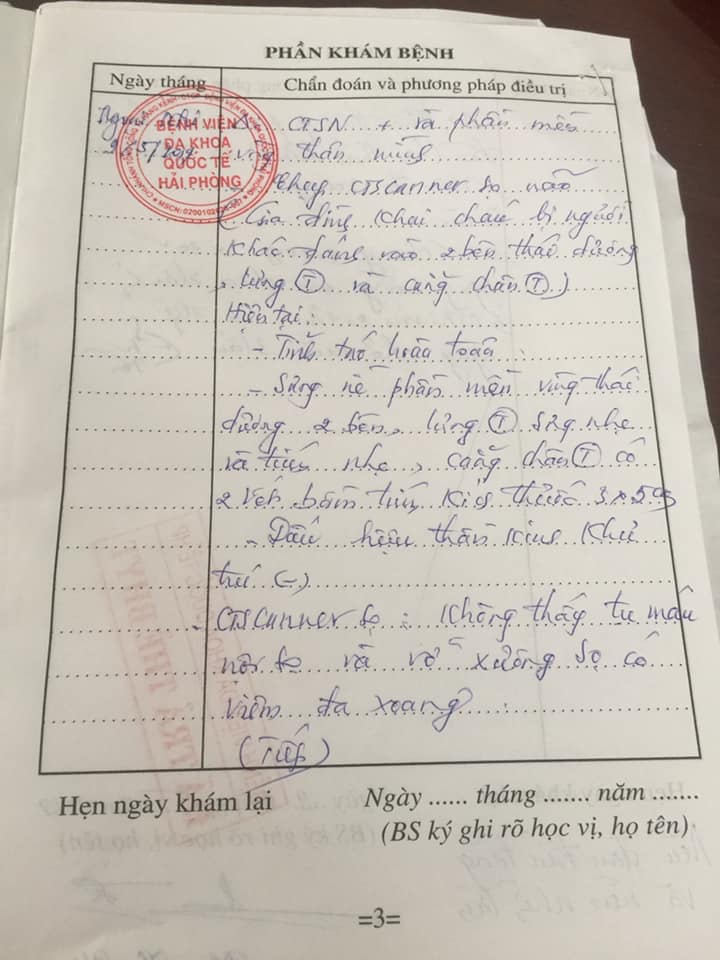 PHẦN KHÁM BỆNH
Ngày tháng
Chẩn đoán và phương pháp điều trị
BỆNH VIỆN
ĐA KHOA
QUỐC TẾ
HẢI PHÒNG
CTSN + và phần mềm
vùng thân mình
chụp CTScanner sọ não
(Gia đình khai cháu bị người
khác đánh vào 2 bên thái dương
, lưng (T) và cẳng chân (T).)
Hiện tại:
- Tỉnh táo hoàn toàn
- Sưng nề phần mềm vùng thái
dương 2 bên, lưng (T) sưng nhẹ
và tím nhẹ, cẳng chân (T) có
2 vết bầm tím kích thước 3x5cm
- Dấu hiệu thần kinh khu
trú (-)
- CTScanner sọ: Không thấy tụ máu
nội sọ và vỡ xương sọ có
viêm đa xoang
(Tiếp)
Hẹn ngày khám lại
Ngày ...... tháng ....... năm .......
(BS ký ghi rõ học vị, họ tên)
=3=